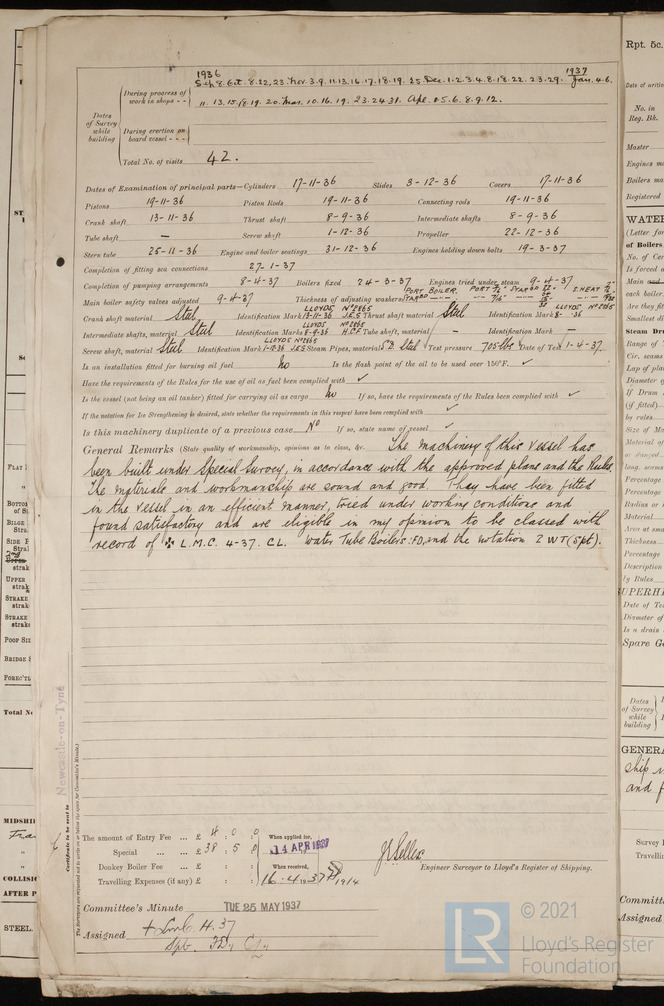 1936 1937
Sep 8. Oct. 8.22,23. Nov. 3.9.11.13.16.17.18.19.25. Dec. 1.2.3.4.8.18.22.23.29. Jan. 4.6.
During progress of work in shops - -
11.13.15.18.19.20. Mar. 10.16.19.23.24.31. Apl. 5.6.8.9.12.
Dates of Survey while building
During erection on board vessel - - -
Total No. of visits 42.
Dates of Examination of principal parts—Cylinders 17-11-36 Slides 3-12-36 Covers 17-11-36
Pistons 19-11-36 Piston Rods 19-11-36 Connecting rods 19-11-36
Crank shaft 13-11-36 Thrust shaft 8-9-36 Intermediate shafts 8-9-36
Tube shaft — Screw shaft 1-12-36 Propeller 22-12-36
Stern tube 25-11-36 Engine and boiler seatings 31-12-36 Engines holding down bolts 19-3-37
Completion of fitting sea connections 27-1-37
Completion of pumping arrangements 8-4-37 Boilers fixed 24-3-37 Engines tried under steam 9-4-37
Main boiler safety valves adjusted 9-4-37 Thickness of adjusting washers
Crank shaft material Steel Identification Mark LLOYDS No 2865 13-11-36 J.E.S Thrust shaft material Steel Identification Mark LLOYDS
Intermediate shafts, material Steel Identification Marks LLOYDS No 2865 8-9-36 H.C.F. Tube shaft, material — Identification Mark —
Screw shaft, material Steel Identification Mark LLOYDS No 2865 1-12-36 J.E.S Steam Pipes, material S.D. Steel Test pressure 705 lbs Date of Test 1-4-37.
Is an installation fitted for burning oil fuel No Is the flash point of the oil to be used over 150°F. ✓
Have the requirements of the Rules for the use of oil as fuel been complied with ✓
Is the vessel (not being an oil tanker) fitted for carrying oil as cargo No If so, have the requirements of the Rules been complied with ✓
If the notation for Ice Strengthening is desired, state whether the requirements in this respect have been complied with ✓
Is this machinery duplicate of a previous case No If so, state name of vessel ✓
General Remarks (State quality of workmanship, opinions as to class, &c. The machinery of this vessel has
been built under Special Survey, in accordance with the approved plans and the Rules.
The materials and workmanship are sound and good. They have been fitted
in the vessel in an efficient manner, tried under working conditions and
found satisfactory and are eligible in my opinion to be classed with
record of ✠ L.M.C. 4-37. CL. Water Tube Boilers: FD, and the notation 2 WT (Spt).
Newcastle-on-Tyne
Certificate to be sent to
(The Surveyors are requested not to write on or below the space for Committee's Minute.)
The amount of Entry Fee ... £ 4 : 0 : 0 When applied for,
Special ... ... £ 38 : 5 : 0 14 APR 1937
Donkey Boiler Fee ... £ : : When received,
Travelling Expenses (if any) £ : : 16.4.1937
Engineer Surveyor to Lloyd's Register of Shipping.
Committee's Minute TUE 25 MAY 1937
Assigned + Lmc 4.37
Spt. FD, CL
© 2021
LR
Lloyd's Register
Foundation
Rpt. 5c.
No. in
Reg. Bk.
Master
Registered
of Boilers
Thickness
Percentage
Description
by Rules
Spare Ge
Dates
of Survey
while
building
GENERA
ship
and
Survey
Travelli
Committ
Assigned
BRIDGE
Total No
MIDSHI
COLLISIO
AFTER P
STEEL.